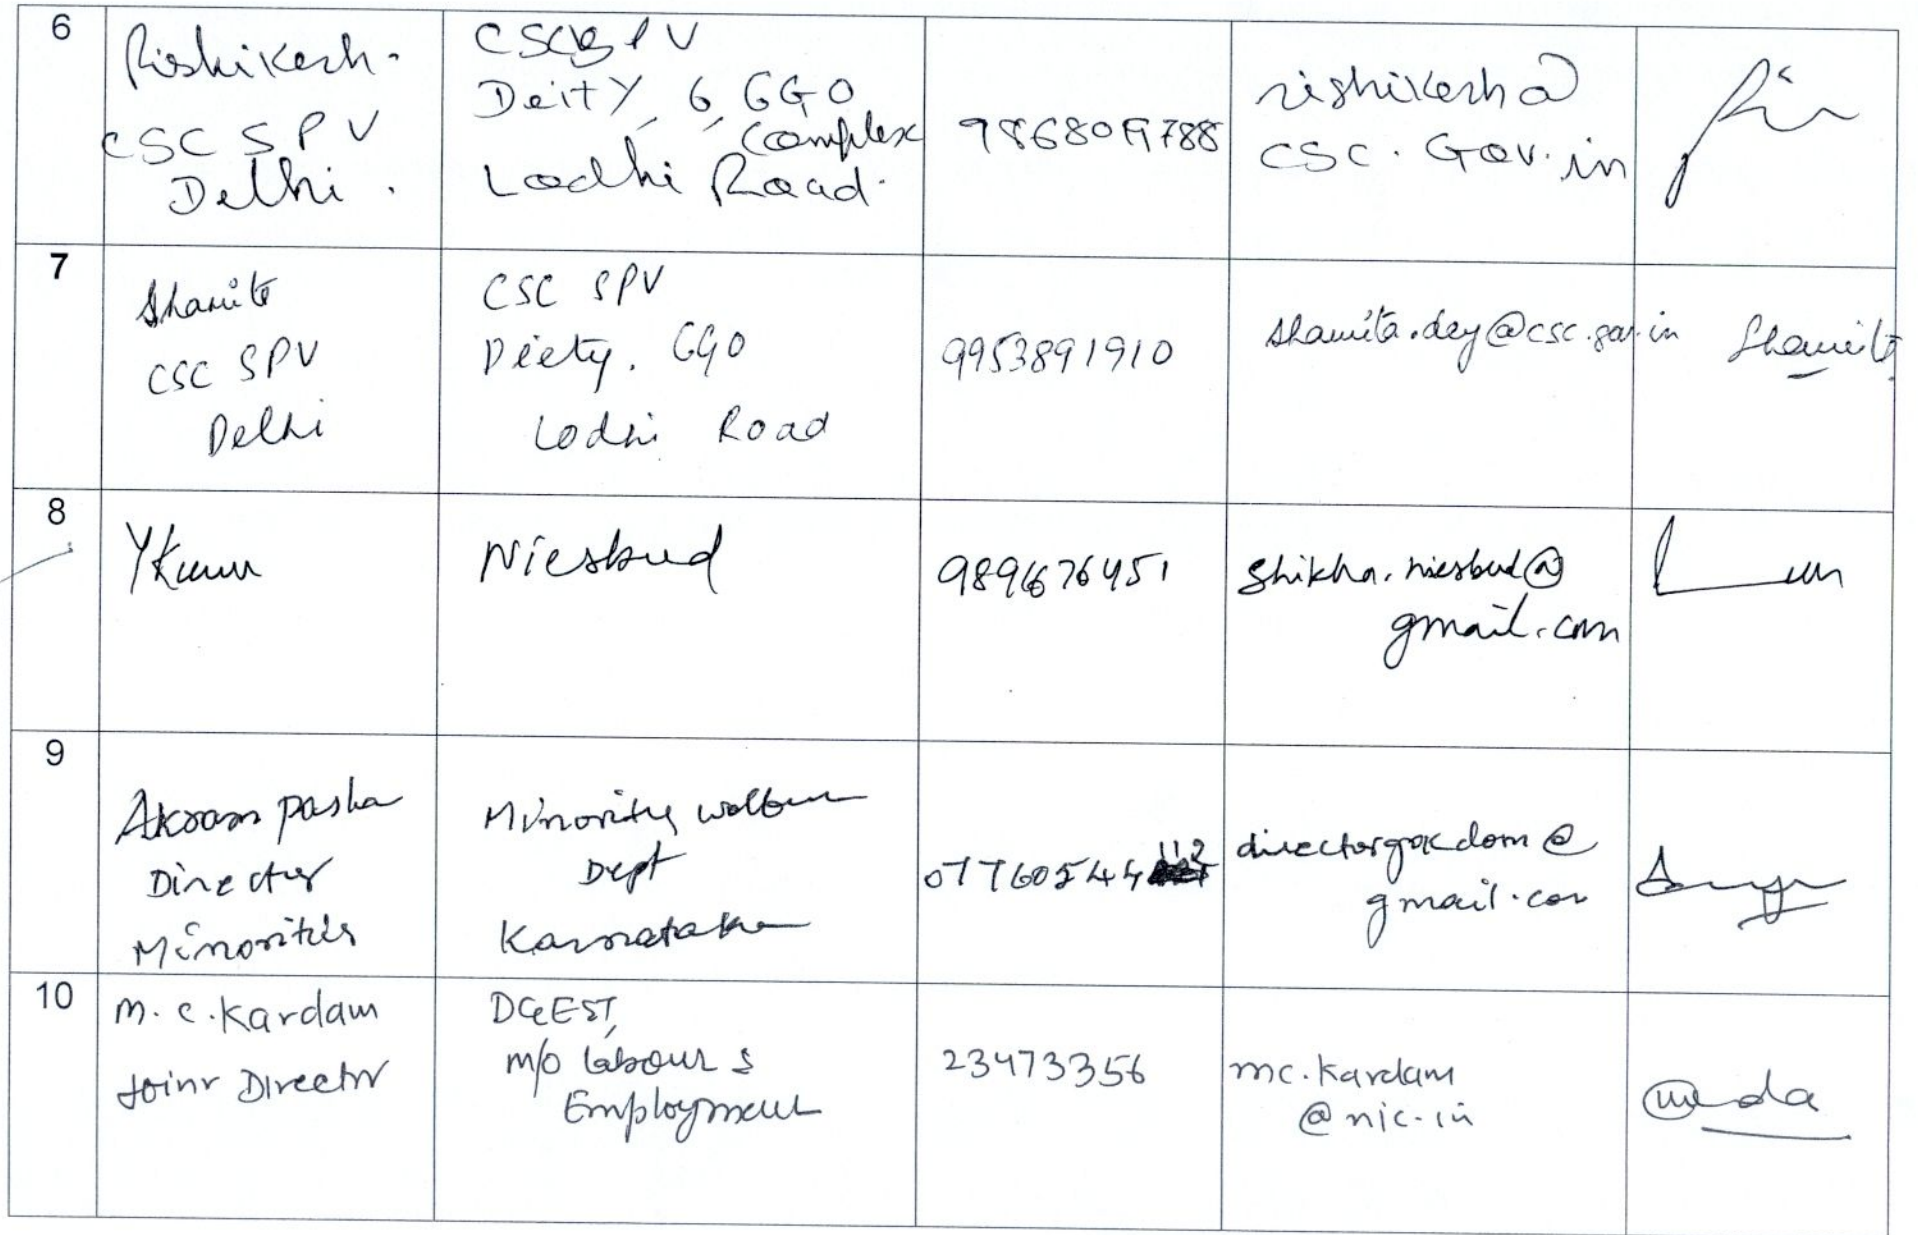 6
Rishikesh.
CSC SPV
Delhi.
CSC SPV
DeitY, 6, CGO
Complex
Lodhi Road.
9868019788
rishikesh@
csc.Gov.in
7
Shamita
CSC SPV
Delhi
CSC SPV
Diety, CGO
Lodhi Road
9953891910
shamita.dey@csc.gov.in
Shamita
8
YKumar
Niesbud
9891676451
shikha.niesbud@
gmail.com
9
Akram pasha
Director
Minorities
Minority welfare
Dept
Karnataka
07760544112
directorgokdom@
gmail.com
10
M.C.Kardam
Joint Director
DGE&T,
m/o labour &
Employment
23473356
mc.kardam
@nic.in